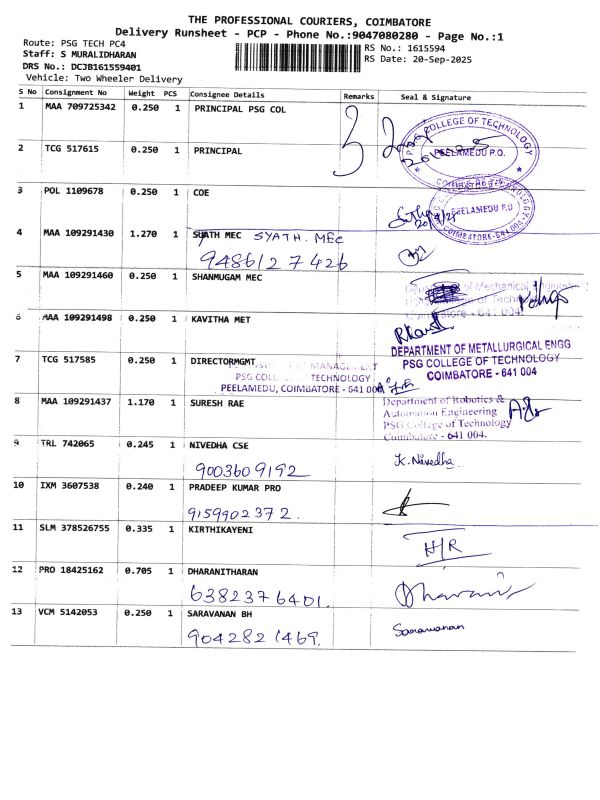 THE PROFESSIONAL COURIERS, COIMBATORE
Delivery Runsheet - PCP - Phone No.:9047080280 - Page No.:1
Route: PSG TECH PC4
Staff: S MURALIDHARAN
DRS No.: DCJB161559401
Vehicle: Two Wheeler Delivery
RS No.: 1615594
RS Date: 20-Sep-2025
S No Consignment No Weight PCS Consignee Details Remarks Seal & Signature
1 MAA 709725342 0.250 1 PRINCIPAL PSG COL
32
PSG COLLEGE OF TECHNOLOGY
PEELAMEDU P.O.
COIMBATORE
2 TCG 517615 0.250 1 PRINCIPAL
3 POL 1109678 0.250 1 COE
PEELAMEDU P.O
COIMBATORE-641 004
4 MAA 109291430 1.270 1 SUATH MEC SYATH. MEC
9486127426
5 MAA 109291460 0.250 1 SHANMUGAM MEC
of Mechanical
of Tech
- 641 004
6 MAA 109291498 0.250 1 KAVITHA MET
DEPARTMENT OF METALLURGICAL ENGG
PSG COLLEGE OF TECHNOLOGY
COIMBATORE - 641 004
7 TCG 517585 0.250 1 DIRECTORMGMT
OF MANAGEMENT
PSG COLL TECHNOLOGY
PEELAMEDU, COIMBATORE - 641 004
8 MAA 109291437 1.170 1 SURESH RAE
Department of Robotics &
Automation Engineering
PSG College of Technology
Coimbatore - 641 004.
9 TRL 742065 0.245 1 NIVEDHA CSE
9003609192
K. Nivedha
10 IXM 3607538 0.240 1 PRADEEP KUMAR PRO
9159902372.
11 SLM 378526755 0.335 1 KIRTHIKAYENI
H/R
12 PRO 18425162 0.705 1 DHARANITHARAN
6382376401.
13 VCM 5142053 0.250 1 SARAVANAN BH
9042821469.
Saravanan